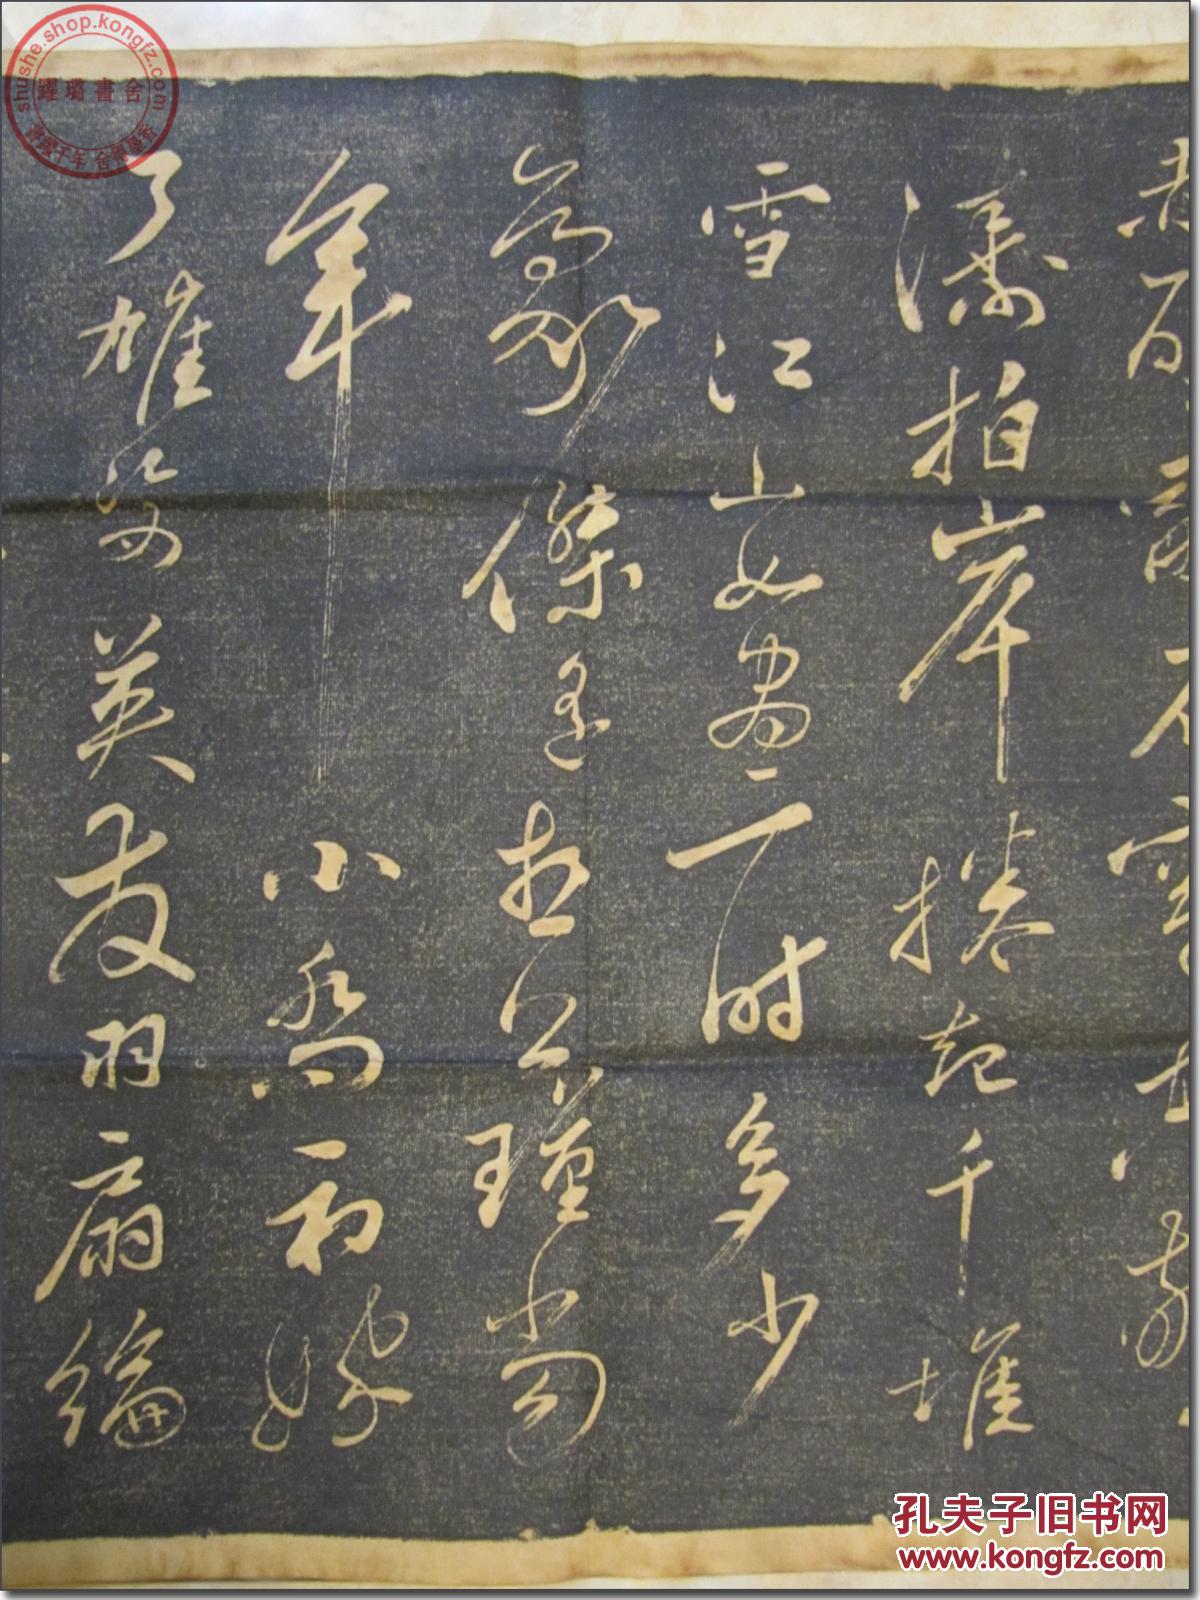 濤拍岸捲起千堆
雪江山如畫一時多少
豪傑遙想公瑾當
年小喬初嫁
了雄姿英發羽扇綸
shushe.shop.kongfz.com
璐書舍
孔夫子旧书网
www.kongfz.com